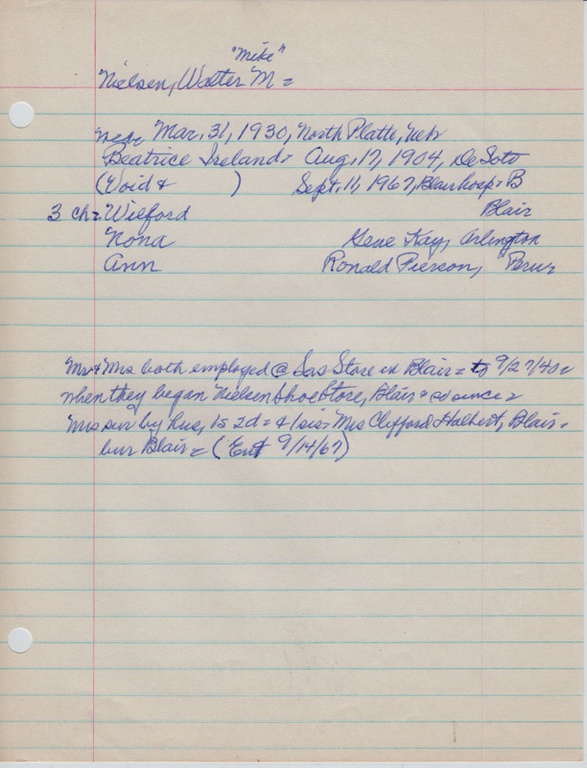 "Mike"
Nielsen, Walter M =
Mar. 31, 1930, North Platte, Neb
Beatrice Ireland = Aug. 17, 1904, DeSoto
(Void & ) Sept. 11, 1967, Blairhosp = B
3 ch = Wilford Blair
Nona Gene Kay, Arlington
Ann Ronald Pierson,
Mr & Mrs both employed @ Store in Blair = to 9/27/40 =
when they began Nielsen Shoe Store, Blair & so since =
Mrs sur by hus, 1s 2d = & 1 sis = Mrs Clifford Halbert, Blair =
bur Blair = (Ent 9/14/67)